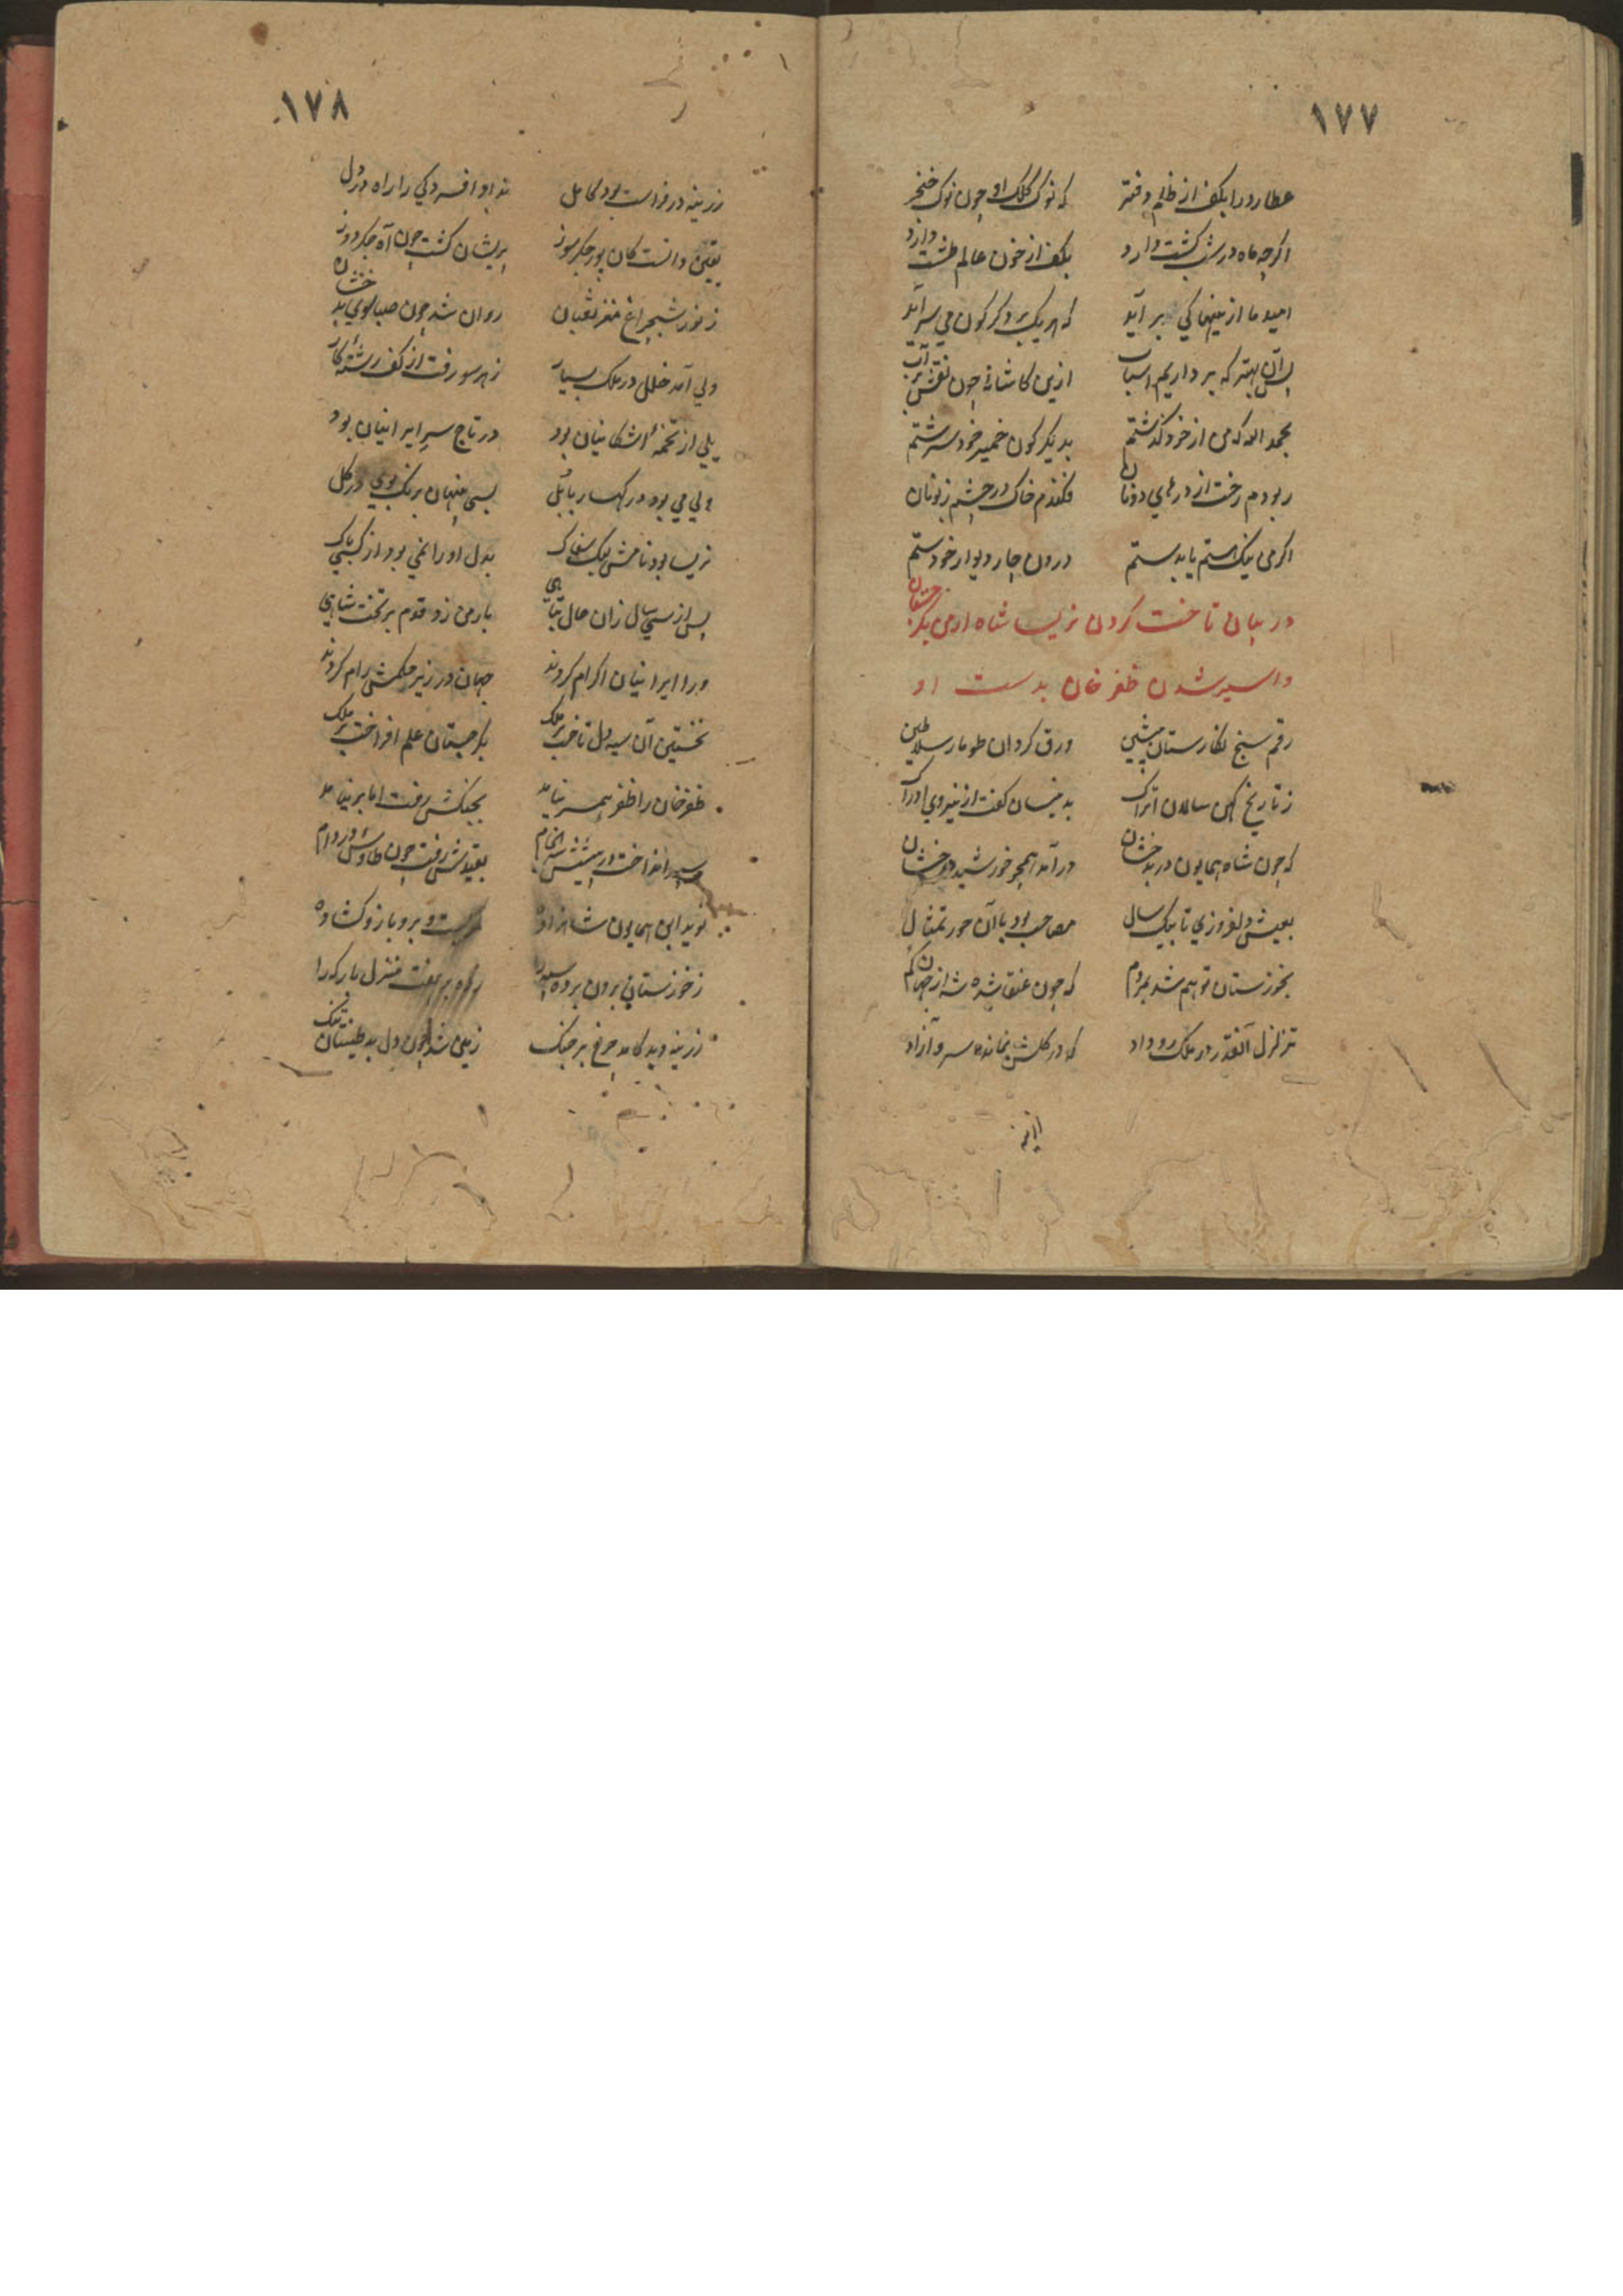 ۱۷۷
عطارد را بکف از ظلم دفتر که نوک کلک او چون نوک خنجر
اکرچه ماه در شب کشت دارد بکف از خون عالم طشت دارد
امید ما از ینها کی بر آید که هر یک بر دکر کون می سر آید
پس آن بهتر که بر داریم اسباب ازین کاشانهٔ چون نقش بر آب
بحمد الله که من از خود کذشتم بدیکر کون خمیر خود سرشتم
ربودم رخت از درهای دونان فکندم خاک در چشم زبونان
اکر من نیک هستم یا بد ستم درون چار دیوار خود ستم
در بیان تاخت کردن نریسا شاه ارمن بکرجستان
و اسیر شدن ظفر خان بدست او
رقم سنج نکارستان پیشین ورق کردان طومار سلاطین
ز تاریخ کهن سالان اتراک بدینسان کفت از نیروی ادراک
که چون شاه همایون در بدخشان در آمد همچو خورشید درخشان
بعیش و دلفروزی تا بیک سال مصاحب بود با آن حور تمثال
بخوزستان توهم شد بمردم که چون عنقا شده شه از جهان کم
تزلزل آنقدر در ملک رو داد که در کلشن نمانده سرو آزاد
۱۷۸
زرینه در فراست بود کامل نداد افسردکی را راه در دل
یقین دانست کان پور جکرسوز پریشان کشت چون آه جکردوز
ز نور شبچراغ مغز ثعبان روان شد چون صبا سوی بدخشان
ولی آمد خلل در ملک بسیار ز هر سو رفت از کف رشتهٔ کار
یلی از تخمهٔ اشکانیان بود در تاج سر ایرانیان بود
ولی می بود در کهسار بابل بسی پنهان برنک بوی در کل
نریسا بود نامش لیک سفاک بدل او را غمی بود از کسی باک
پس از سی سال زان حال تباهی بارمن زد قدم بر تخت شاهی
ورا ایرانیان اکرام کردند جهان در زیر حکمش رام کردند
نخستین آن سیه دل تاخت بر ملک بکرجستان علم افراخت بر ملک
ظفرخان را ظفر همسر نیامد بجنکش رفت اما بر نیامد
سپر انداخت در پیشش سر انجام بقیدش رفت چون طاوس در دام
نوید ابن همایون شاهزاده برو بازو کشاده
ز خوزستان برون برده سپه را بهفت منزل بارکه را
زرینه دید کامد چرخ بر جنک زمین شد چون دل بد طینتان تنک